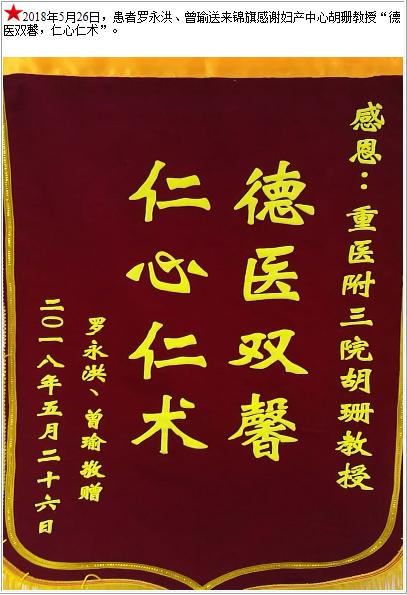 ★2018年5月26日，患者罗永洪、曾瑜送来锦旗感谢妇产中心胡珊教授“德
医双馨，仁心仁术”。
感恩：重医附三院胡珊教授
德医双馨
仁心仁术
罗永洪、曾瑜敬赠
二〇一八年五月二十六日